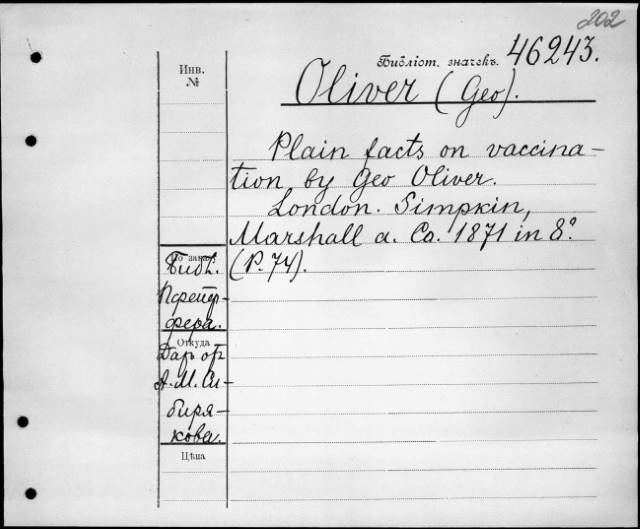 202
Библіот. значекъ. 46243.
Инв.
№
Oliver (Geo).
Plain facts on vaccina-
tion by Geo Oliver.
London. Simpkin,
Marshall a. Co. 1871 in 8°.
(P. 74).
По заказ.
Библ.
Пфейф-
фера.
Откуда
Даръ от
А. М. Си-
биря-
кова.
Цѣна